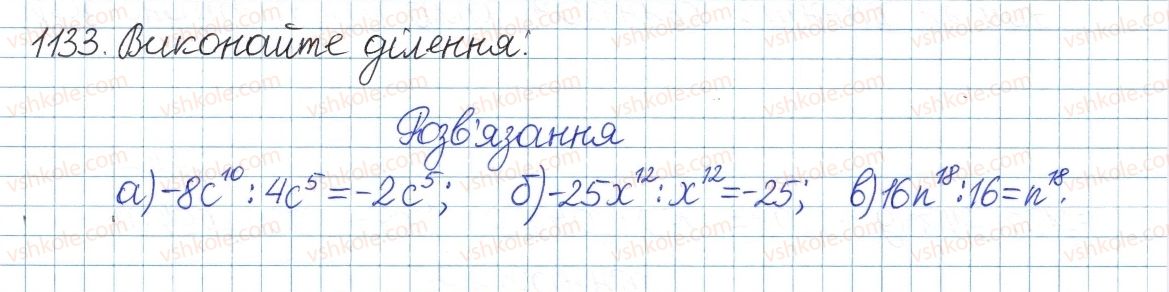 1133. Виконайте ділення:
Розв'язання
а) -8c¹⁰ : 4c⁵ = -2c⁵; б) -25x¹² : x¹² = -25; в) 16n¹⁸ : 16 = n¹⁸.